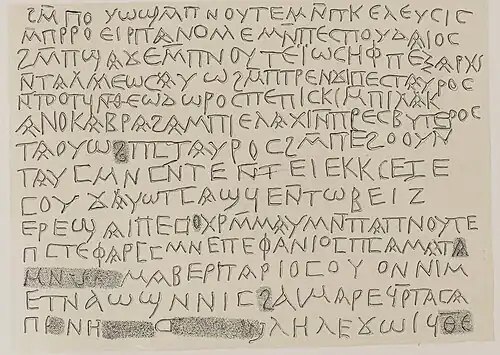 ϩⲙ̄ ⲡⲟⲩⲱϣ ⲙ̄ⲡⲛⲟⲩⲧⲉ ⲙⲛ̄ ⲡⲕⲉⲗⲉⲩⲥⲓⲥ
ⲙⲡⲣⲣⲟ ⲉⲓⲣⲡⲁⲛⲟⲙⲉ ⲙⲛ̄ ⲡⲉⲥⲡⲟⲩⲇⲁⲓⲟⲥ
ϩⲙ̄ ⲡϣⲁϫⲉ ⲙⲡⲛⲟⲩⲧⲉ ⲓ̈ⲱⲥⲏⲫ ⲡⲉⲝⲁⲣⲭⲓ
ⲛ̄ⲧⲁⲗⲙⲉⲱⲥ ⲁⲩⲱ ϩⲙ̄ ⲡⲧⲣⲉⲛϫⲓ ⲡⲉⲥⲧⲁⲩⲣⲟⲥ
ⲛ̄ⲧⲟⲟⲧϥ̄ ⲛⲑⲉⲱⲇⲱⲣⲟⲥ ⲡⲉⲡⲓⲥⲕ ⲙⲡⲓⲗⲁⲕ
ⲁⲛⲟⲕ ⲁⲃⲣⲁϩⲁⲙ ⲡⲓⲉⲗⲁⲭ ⲙ̄ⲡⲣⲉⲥⲃⲩⲧⲉⲣⲟⲥ
ⲧⲁⲟⲩⲱϩ ⲡⲥⲧⲁⲩⲣⲟⲥ ϩⲙ̄ ⲡⲉϩⲟⲟⲩ ⲛ
ⲧⲁⲩⲥⲙⲛ ⲥⲛⲧⲉ ⲛⲧⲉⲓⲉⲕⲕⲥⲉⲓⲉ
ⲥⲟⲩ ϫⲟⲩⲱⲧⲥⲁϣϥⲉ ⲛⲧⲱⲃⲉ
ⲉⲣⲉ ϣⲁⲓ ⲡⲉⲡⲟⲭⲣ ⲙ̄ⲙⲁⲩ ⲙⲛ ⲡⲁⲡⲛⲟⲩⲧⲉ
ⲡⲥⲧⲉⲫⲁⲣⲥ ⲙⲛ ⲉⲡⲉⲫⲁⲛⲓⲟⲥ ⲡⲥⲁⲙⲁⲧⲁ
ⲙⲛ ⲃⲉⲣⲓⲧⲁⲣⲓⲟⲥ ⲟⲩⲟⲛ ⲛⲓⲙ
ⲉⲧⲛⲁⲱϣ ⲛⲛⲓⲥϩⲁⲓ ⲙⲁⲣⲉϥⲣ̄ⲧⲁⲅⲁ
ⲡⲏ ⲛ ϣⲗⲏⲗ ⲉϫⲱⲓ ϥⲑⲉ